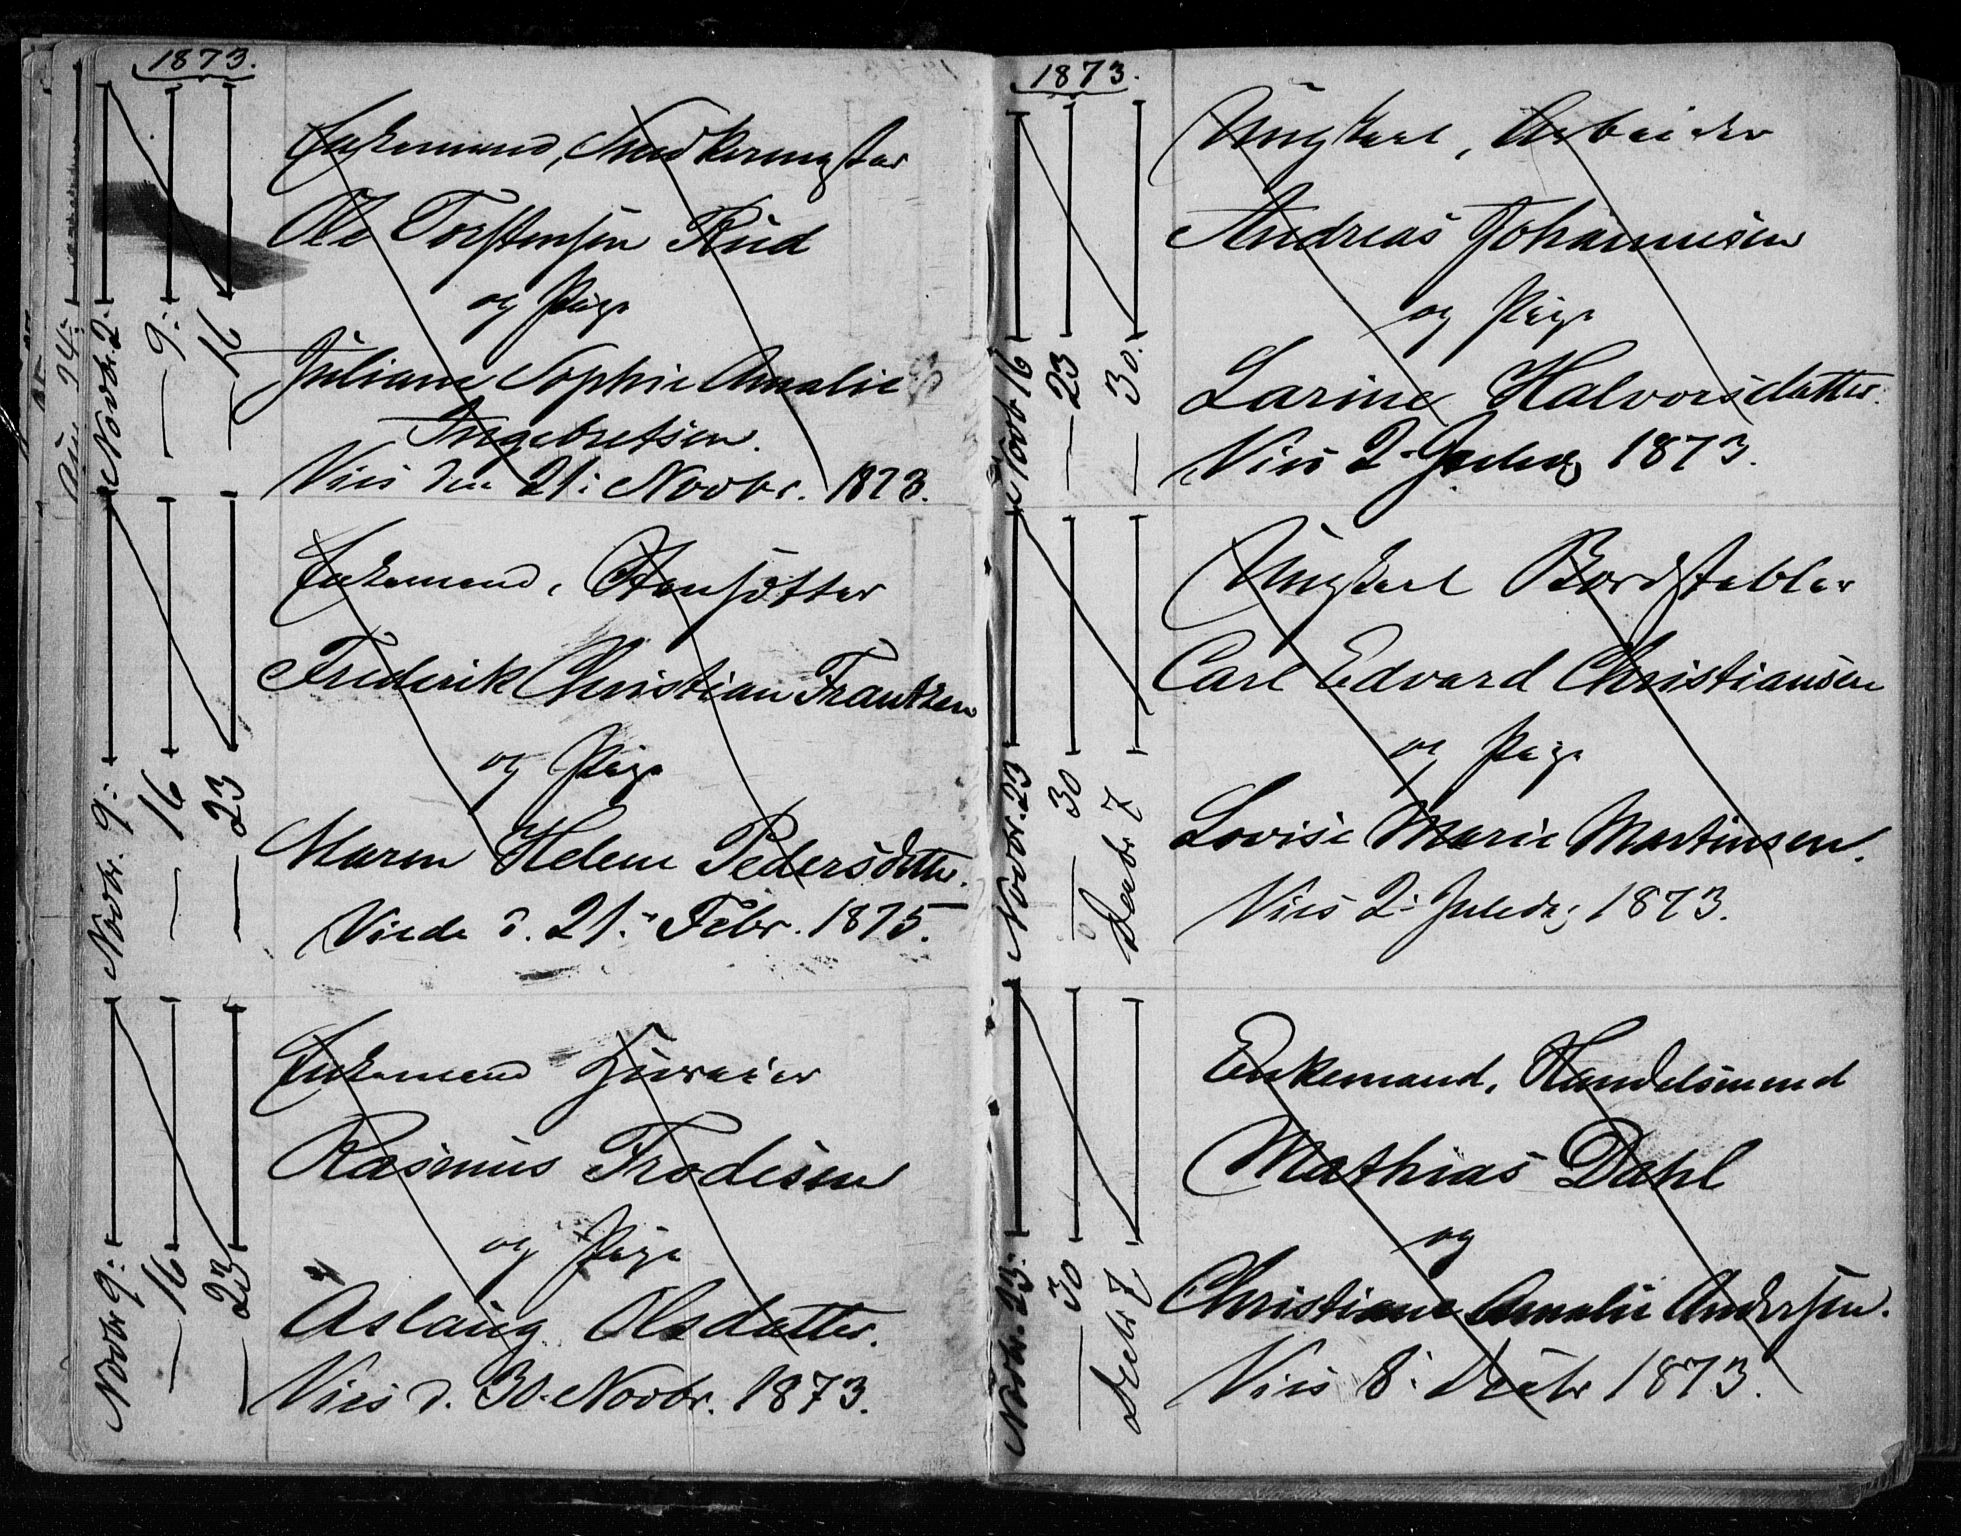 1873.
Novbr. 2:
— 9:
— 16
Enkemand, Snedkermester
Ole Torstensen Rud
og Pige
Juliane Sophie Amalie
Ingebretsen.
Vies den 21: Novbr. 1873.
Novbr. 9:
— 16
— 23
Enkemand,
Frederik Christian Frantzen
og Pige
Maren Helene Pedersdatter.
Viede d. 21: Febr. 1875.
Novbr 9:
— 16
— 23
Enkemand Huseier
Rasmus Frodesen
og Pige
Aslaug Olsdatter.
Vies d. 30. Novbr. 1873.
1873.
Novbr 16
— 23
— 30.
Ungkarl, Arbeider
Andreas Johannesen
og Pige
Larine Halvorsdatter.
Vies 2. Juledg 1873.
Novbr. 23
— 30
Decbr 7
Ungkarl Bordstabler
Carl Edvard Christiansen
og Pige
Lovise Marie Martinsen.
Vies 2: Juledg 1873.
Novbr. 23:
— 30
Decbr 7
Enkemand, Handelsmand
Mathias Dahl
og
Christiane Amalie Andersen.
Vies 8: Decbr 1873.